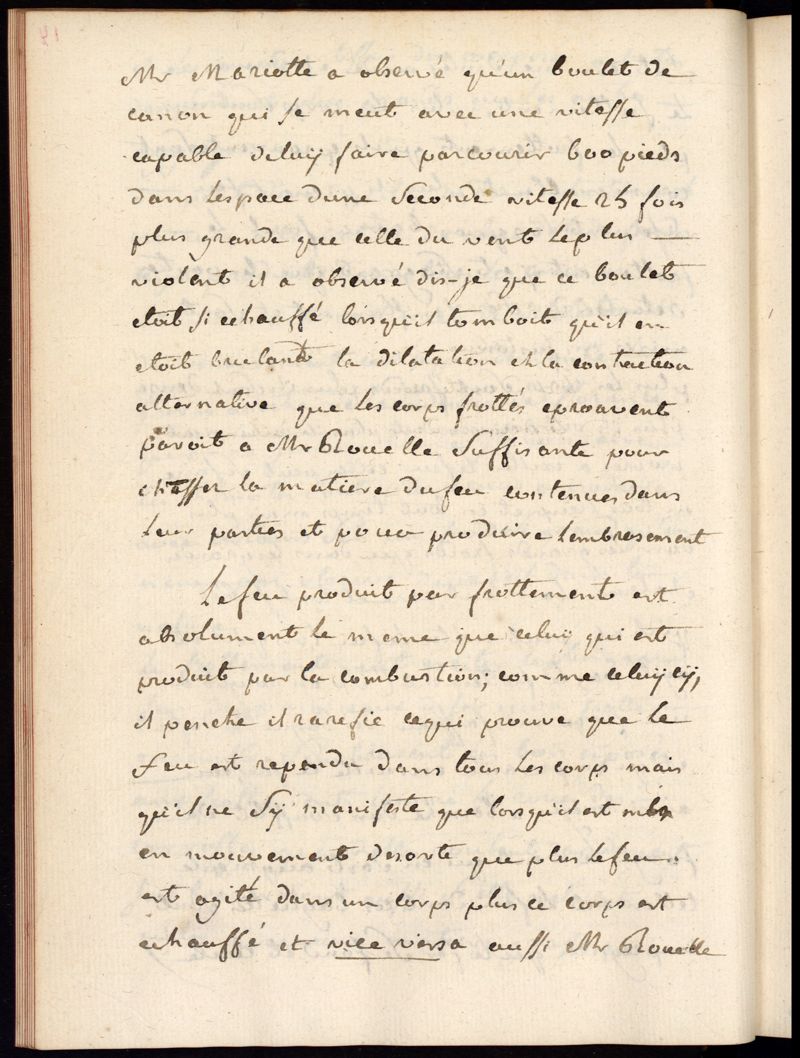 Mr Mariotte a observé qu'un boulet de
canon qui se meut avec une vitesse
capable deluÿ faire parcourir 600 pieds
dans lespace dune seconde vitesse 25 fois
plus grande que celle du vent leplus —
violent il a observé dis-je que ce boulet
etoit si echauffé lorsqu'il tomboit qu'il en
etoit brulant la dilatation et la contraction
alternative que les corps frottés eprouvent
paroit a Mr Rouelle suffisante pour
chasser la matiere dufeu contenues dans
leur parties et pour produire lembrasement
Le feu produit par frottement est
absolument le meme que celuÿ qui est
produit par la combustion; comme celuÿ cÿ,
il penche il rarefie cequi prouve que le
feu est rependu dans tous les corps mais
qu'il ne sÿ manifeste que lorsqu'il est mis
en mouvement desorte que plus lefeu
est agité dans un corps plus ce corps est
echauffé et vice versa aussi Mr Rouelle